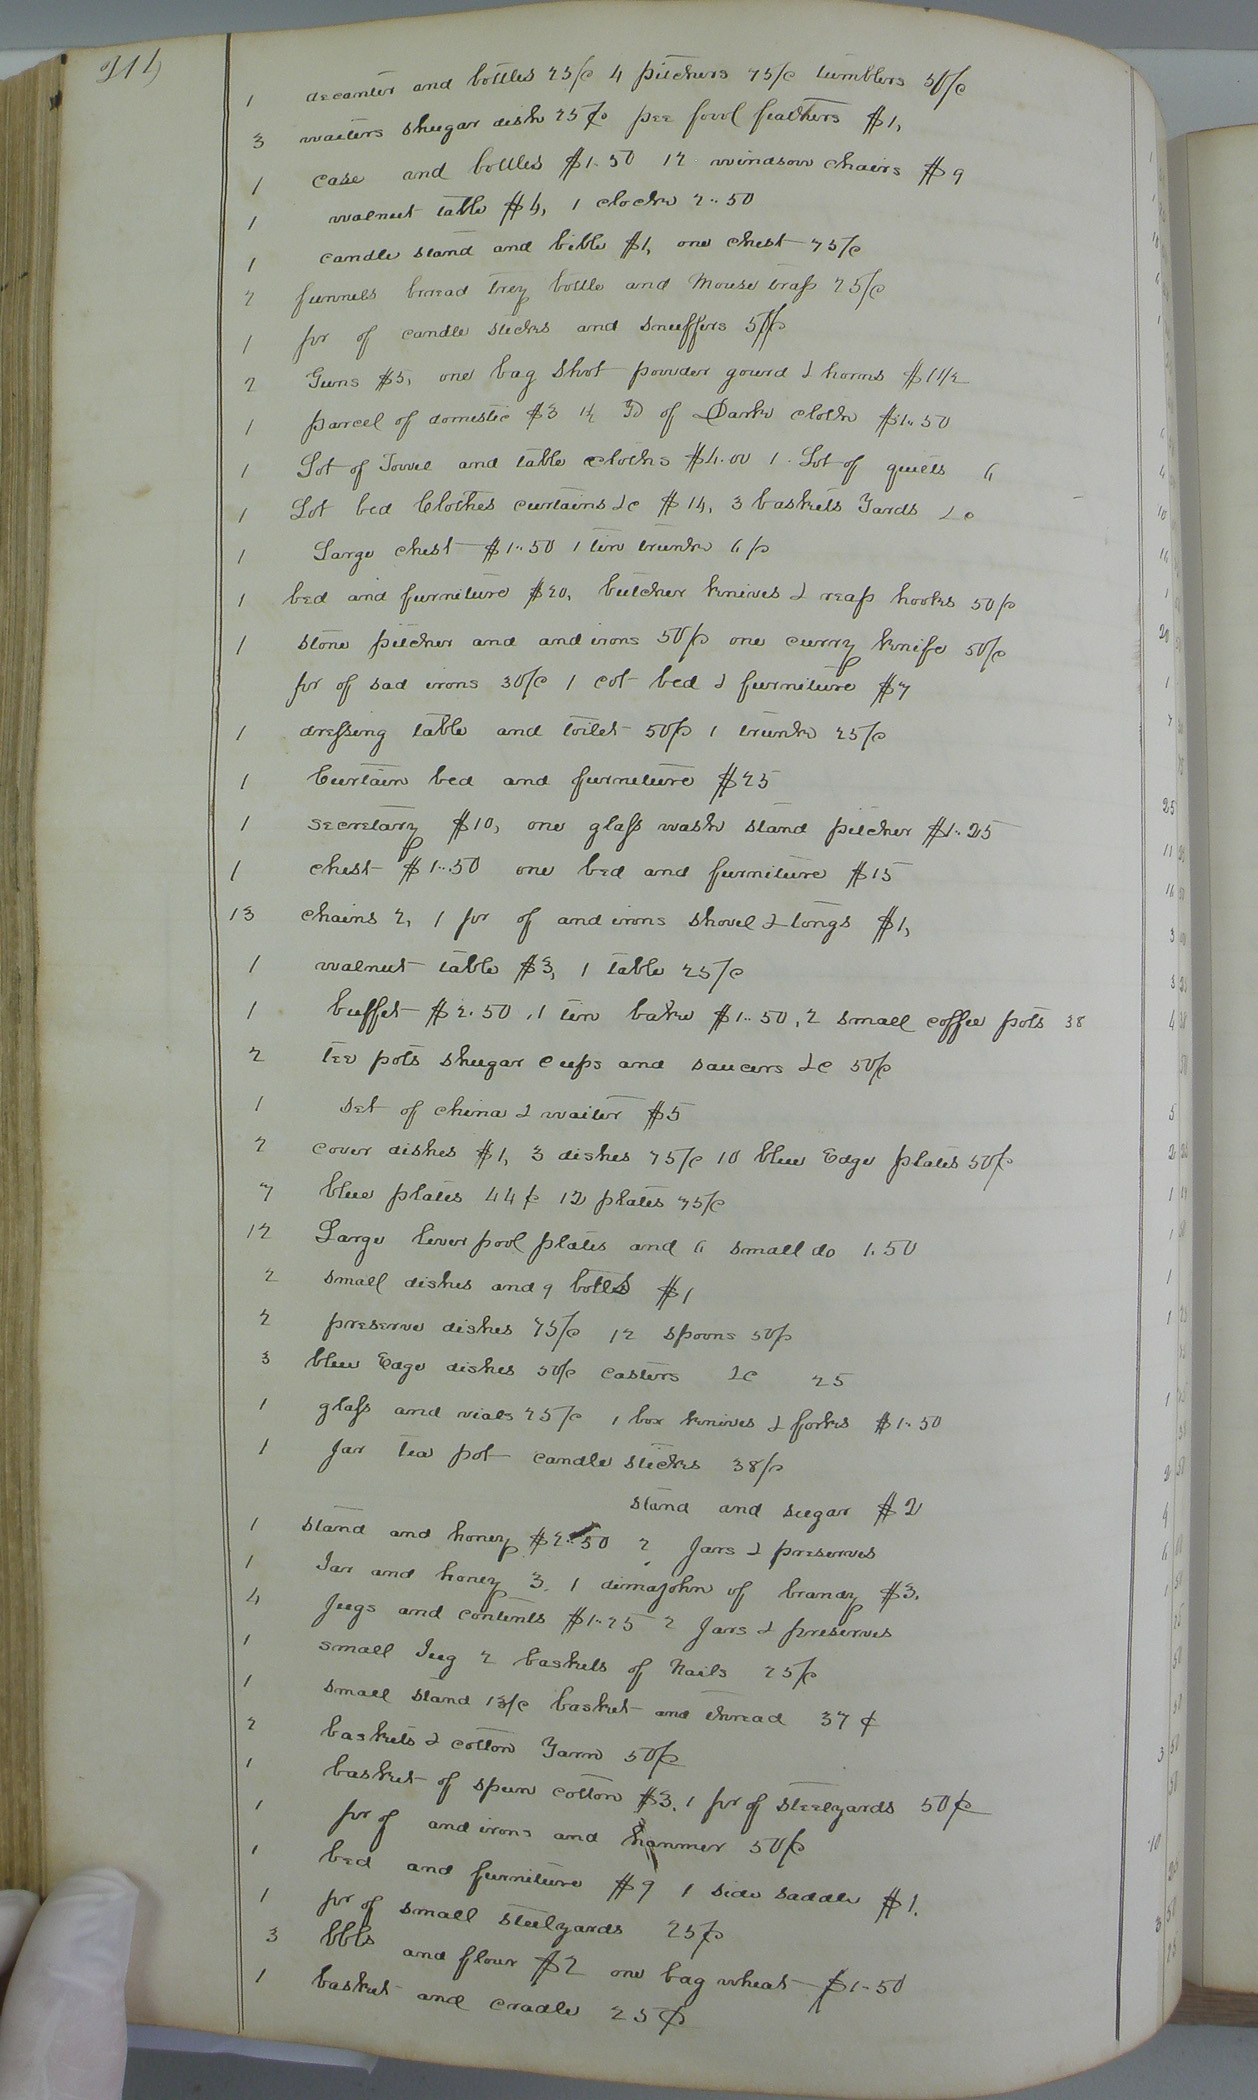 1 decanter and bottles 25/c 4 pitchers 75/c tumblers 50/c
3 waiters shugar dish 25¢ pee fowl feathers $1,
1 case and bottles $1.50 12 windsow chairs $9
1 walnut table $4, 1 clocke 2..50
1 candle stand and bible $1, one chest 75/c
2 funnels brread trey bottle and mouse trap 25/c
1 pr of candle sticks and snuffers 5
2 Guns $5, one bag shot powder gourd & horns $1 1/2
1 parcel of domestic $3 of Darke cloth $1..50
1 Lot of Towel and table cloths $4.00 1 Lot of quilts 6
1 Lot bed Clothes curtains &c $14, 3 baskets Yards &c
1 Large chest $1..50 1 tin trunke 6/c
1 bed and furniture $20, butcher knives & reap hooks 50/c
1 stone pitcher and and irons 50/c one curry knife 50/c
pr of sad irons 30/c 1 cot bed & furniture $7
1 dressing table and toilet 50/c 1 trunke 25/c
1 Curtain bed and furniture $25
1 secretary $10, one glass wash stand pitcher $1..25
1 chest $1..50 one bed and furniture $15
13 chains 2, 1 pr of and irons shovel & tongs $1,
1 walnut table $3, 1 table 25/c
1 buffet $2.50, 1 tin bake $1..50, 2 small coffee pots 38
2 tee pots shugar cups and saucers &c 50/c
1 set of china & waiter $5
2 cover dishes $1, 3 dishes 75/c 10 blue Edge plates 50/c
7 blue plates 44¢ 12 plates 75/c
12 Large liverpool plates and 6 small do 1.50
2 small dishes and 9 bottls $1
2 preserve dishes 75/c 12 spoons 50/c
3 blue Edge dishes 50/c casters &c 25
1 glass and vials 25/c 1 box knives & forks $1..50
1 Jar tea pot candle sticks 38/c
stand and sugar $2
1 stand and honey $2..50 2 Jars & preserves
1 Jar and honey 3. 1 dimajohn of brandy $3.
4 Jugs and contents $1..25 2 Jars & preserves
1 small Jug 2 baskets of Nails 25/c
1 small stand 13/c basket and thread 37¢
2 baskets & cotton Yarn 50/c
1 basket of spun cotton $3. 1 pr of steelyards 50¢
1 pr of and irons and hammer 50/c
1 bed and furniture $9 1 side saddle $1.
1 pr of small steelyards 25/c
3 bbls and flour $2 one bag wheat $1..50
1 basket and cradle 25¢